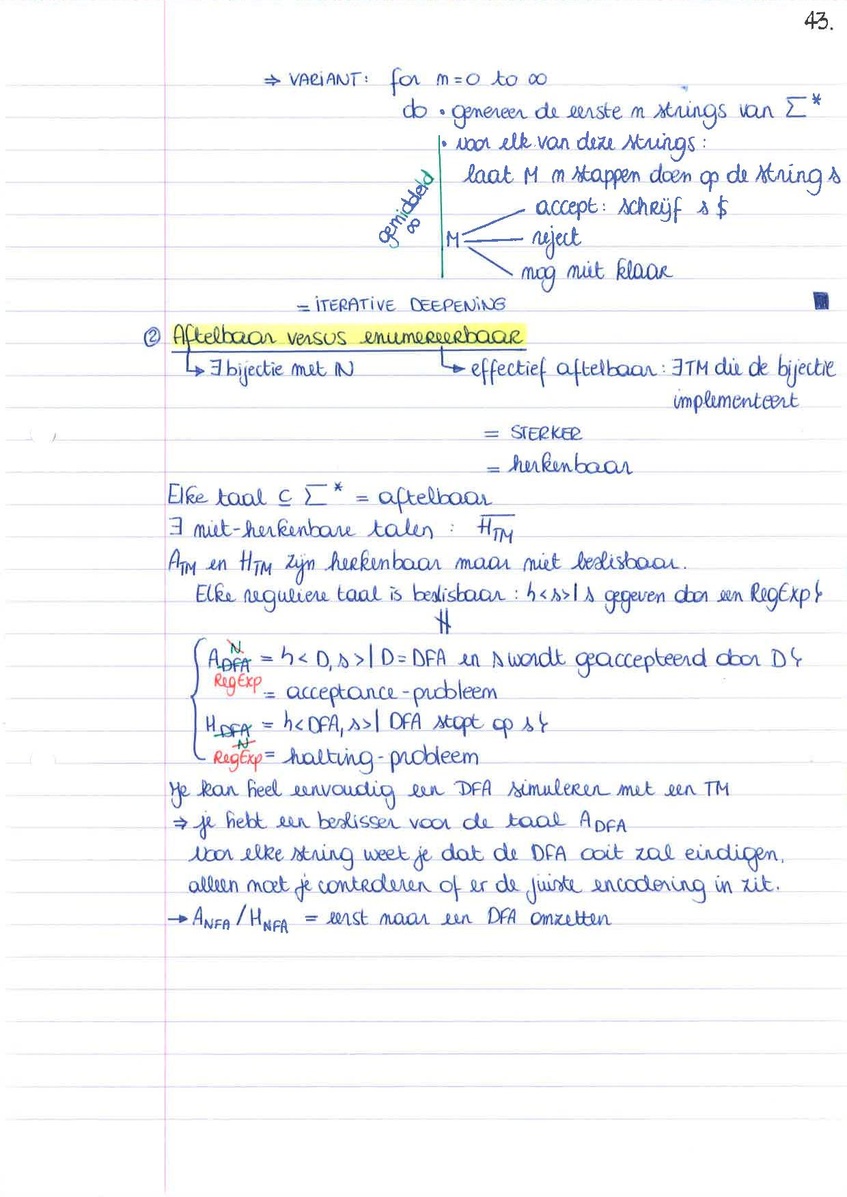 43.
⇒ VARIANT: for m=0 to ∞
do • genereer de eerste m strings van Σ*
• voor elk van deze strings:
laat M m stappen doen op de string s
gemiddeld ∞
accept: schrijf s $
M reject
nog niet klaar
= ITERATIVE DEEPENING
② Aftelbaar versus enumereerbaar
↳ ∃ bijectie met ℕ ↳ effectief aftelbaar: ∃TM die de bijectie
implementeert
= STERKER
= herkenbaar
Elke taal ⊆ Σ* = aftelbaar
∃ niet-herkenbare talen : H̅_TM
A_TM en H_TM zijn herkenbaar maar niet beslisbaar.
Elke reguliere taal is beslisbaar : {<s>| s gegeven door een RegExp}
∦
N
A_DFA = {< D, s >| D = DFA en s wordt geaccepteerd door D}
RegExp = acceptance-probleem
H_DFA = {<DFA, s>| DFA stopt op s}
N
RegExp = halting-probleem
Je kan heel eenvoudig een DFA simuleren met een TM
⇒ je hebt een beslisser voor de taal A_DFA
Voor elke string weet je dat de DFA ooit zal eindigen,
alleen moet je controleren of er de juiste encodering in zit.
→ A_NFA / H_NFA = eerst naar een DFA omzetten